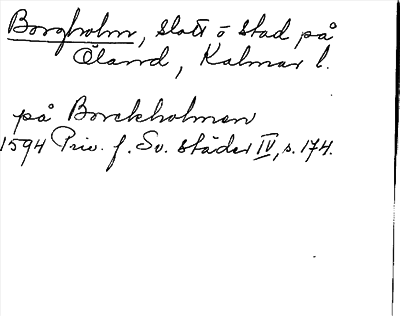 Borgholm, slott o stad på
Öland, Kalmar l.
på Borckholmen
1594 Priv. f. Sv. städer IV, s. 174.